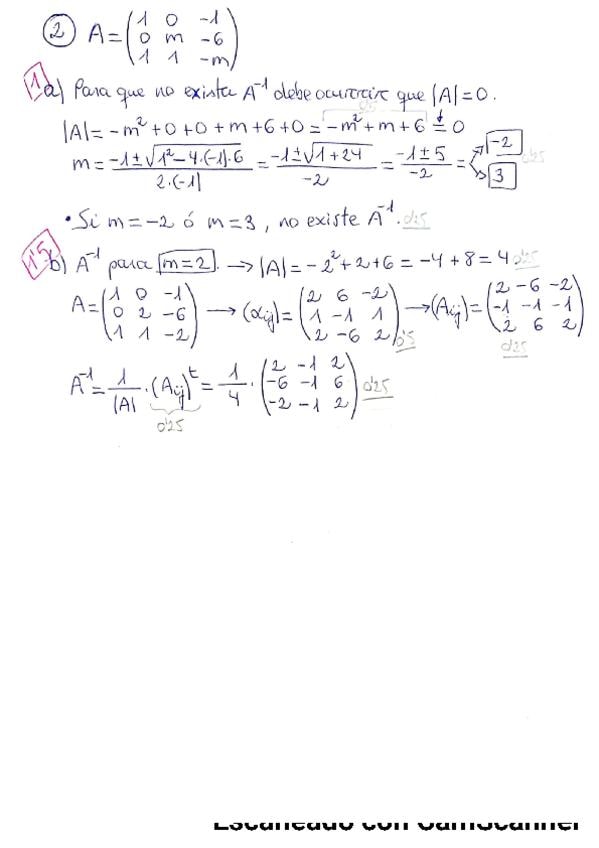 ② A = (1 0 -1
0 m -6
1 1 -m)
1 a) Para que no exista A⁻¹ debe ocurrir que |A| = 0.
0'5
|A| = -m² + 0 + 0 + m + 6 + 0 = -m² + m + 6 = 0
m = (-1 ± √(1² - 4·(-1)·6)) / (2·(-1)) = (-1 ± √(1 + 24)) / (-2) = (-1 ± 5) / (-2) = -2 3 0'25
• Si m = -2 ó m = 3, no existe A⁻¹. 0'25
1'5 b) A⁻¹ para m = 2. → |A| = -2² + 2 + 6 = -4 + 8 = 4 0'25
A = (1 0 -1 / 0 2 -6 / 1 1 -2) → (αij) = (2 6 -2 / 1 -1 1 / 2 -6 2) 0'5 → (Aij) = (2 -6 -2 / -1 -1 -1 / 2 6 2) 0'25
A⁻¹ = 1/|A| · (Aij)ᵗ = 1/4 · (2 -1 2 / -6 -1 6 / -2 -1 2) 0'25
0'25
Escaneado con CamScanner